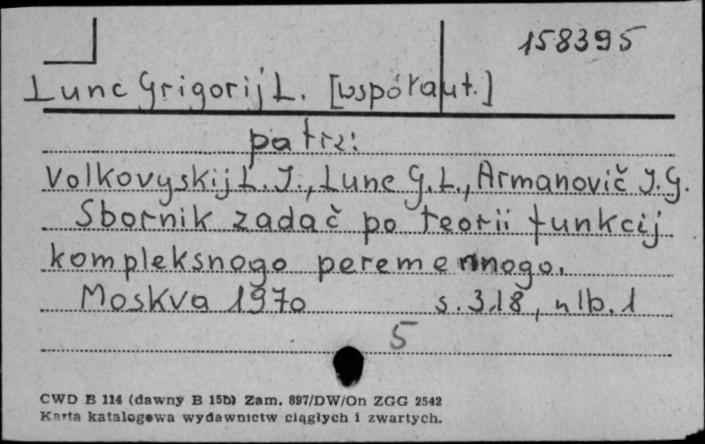 158395
Lunc Grigorij L. [współaut.]
patrz:
Volkovyskij L. I., Lunc G. L., Armanovič I. G.
Sbornik zadač po teorii funkcij
kompleksnogo peremennogo.
Moskva 1970 s. 318, nlb. 1
5
CWD B 114 (dawny B 15b) Zam. 897/DW/On ZGG 2542
Karta katalogowa wydawnictw ciągłych i zwartych.